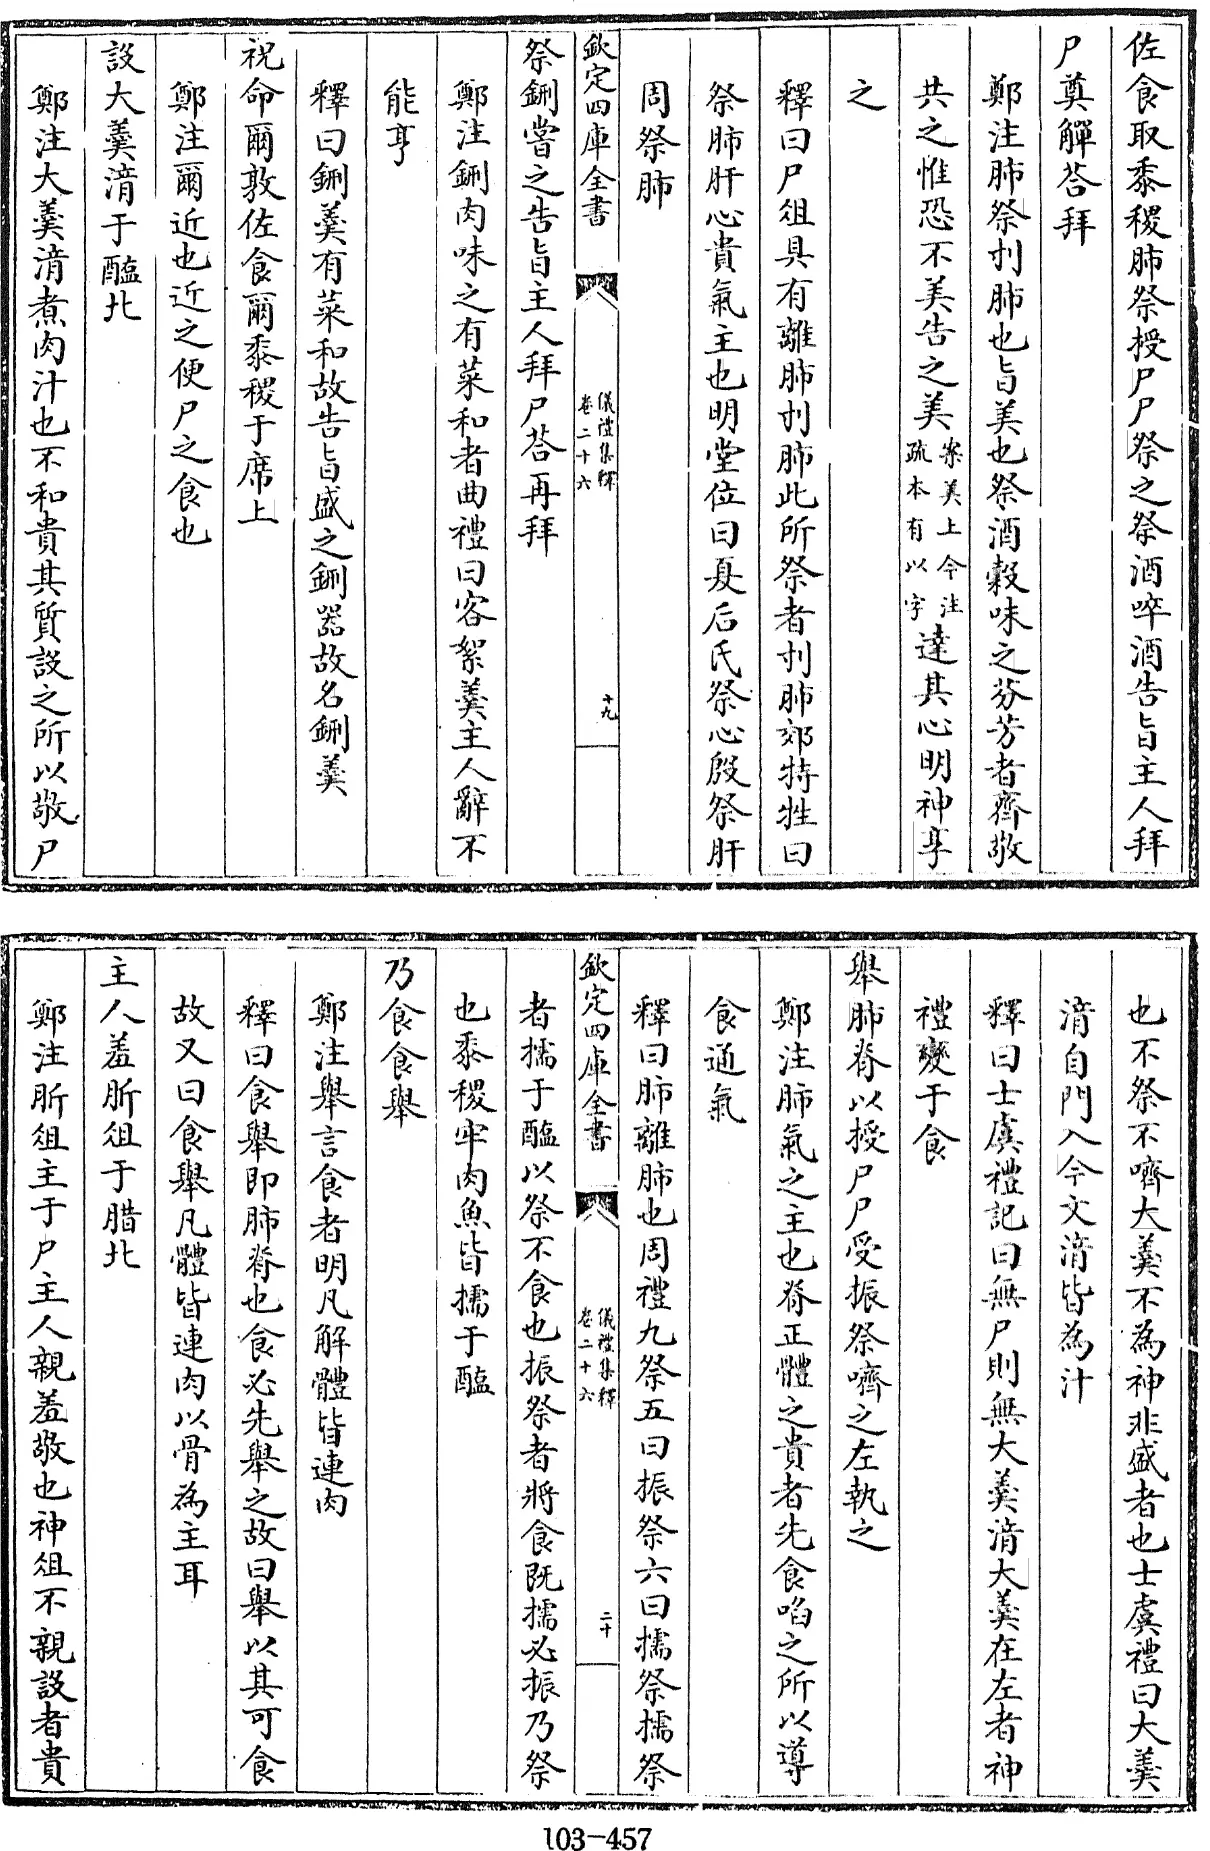 佐食取黍稷肺祭授尸尸祭之祭酒啐酒告旨主人拜
尸奠觶荅拜
鄭注肺祭刌肺也旨美也祭酒穀味之芬芳者齊敬
共之惟恐不美告之美案美上今注疏本有以字達其心明神享
之
釋曰尸俎具有離肺刌肺此所祭者刌肺郊特牲曰
祭肺肝心貴氣主也明堂位曰夏后氏祭心殷祭肝
周祭肺
欽定四庫全書 儀禮集釋 卷二十六 十九
祭鉶嘗之告旨主人拜尸荅再拜
鄭注鉶肉味之有菜和者曲禮曰客絮羹主人辭不
能亨
釋曰鉶羹有菜和故告旨盛之鉶器故名鉶羹
祝命爾敦佐食爾黍稷于席上
鄭注爾近也近之便尸之食也
設大羹湆于醢北
鄭注大羹湆煮肉汁也不和貴其質設之所以敬尸
也不祭不嚌大羹不為神非盛者也士虞禮曰大羹
湆自門入今文湆皆為汁
釋曰士虞禮記曰無尸則無大羹湆大羹在左者神
禮變于食
舉肺脊以授尸尸受振祭嚌之左執之
鄭注肺氣之主也脊正體之貴者先食啗之所以導
食通氣
釋曰肺離肺也周禮九祭五曰振祭六曰擩祭擩祭
欽定四庫全書 儀禮集釋 卷二十六 二十
者擩于醢以祭不食也振祭者將食既擩必振乃祭
也黍稷牢肉魚皆擩于醢
乃食食舉
鄭注舉言食者明凡解體皆連肉
釋曰食舉即肺脊也食必先舉之故曰舉以其可食
故又曰食舉凡體皆連肉以骨為主耳
主人羞肵俎于腊北
鄭注肵俎主于尸主人親羞敬也神俎不親設者貴
103-457